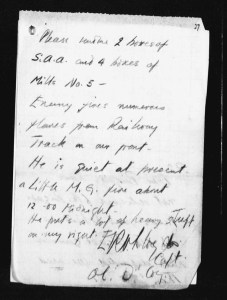 Please send 2 boxes of
S.A.A. and 4 boxes of
Mills No. 5 -
Enemy fires numerous
flares from Railway
Track on our front.
He is quiet at present.
a little M.G. fire about
12.00 midnight.
He puts a lot of heavy stuff
on my right.
Capt
O.C. Coy